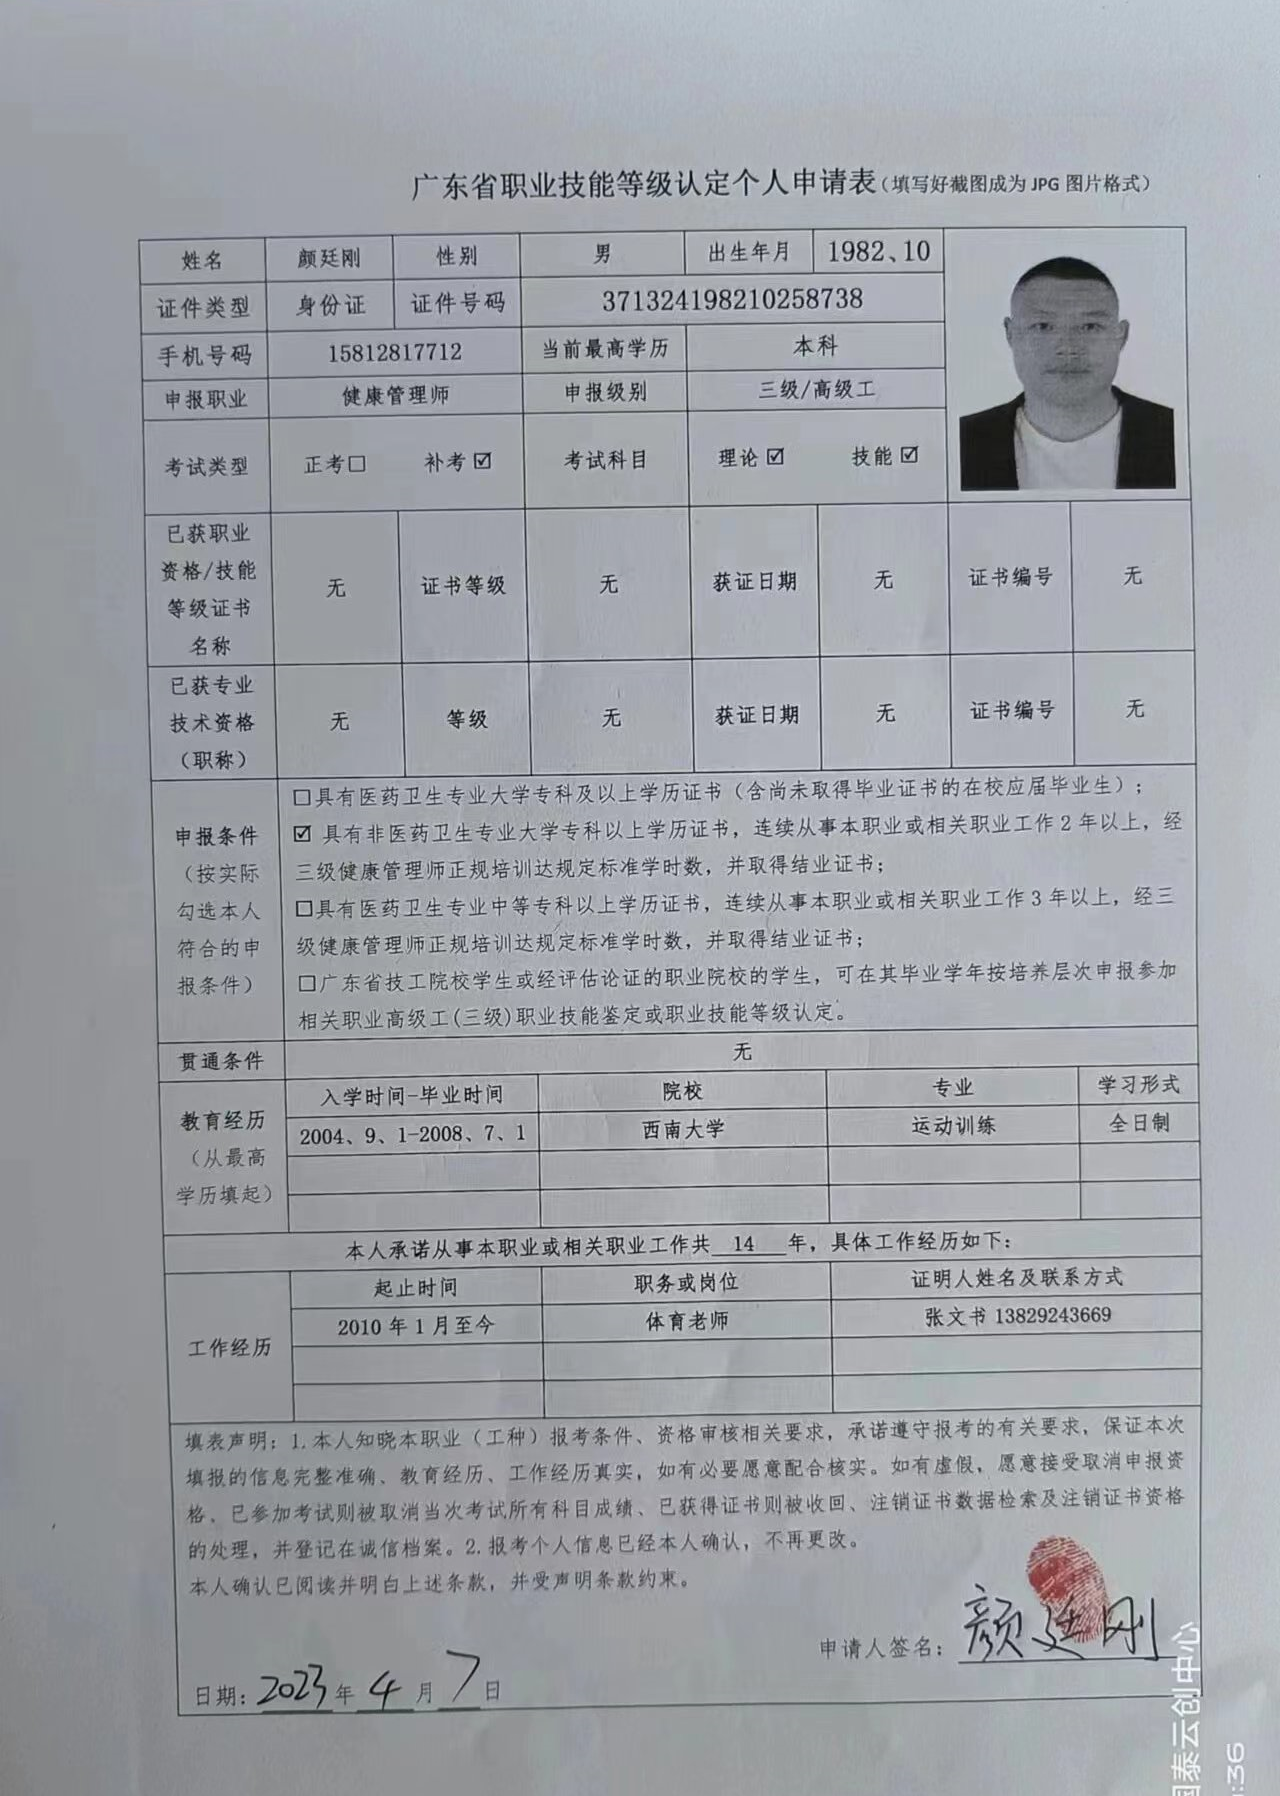 广东省职业技能等级认定个人申请表(填写好截图成为 JPG 图片格式)
姓名 颜廷刚 性别 男 出生年月 1982、10
证件类型 身份证 证件号码 371324198210258738
手机号码 15812817712 当前最高学历 本科
申报职业 健康管理师 申报级别 三级/高级工
考试类型 正考□ 补考☑ 考试科目 理论☑ 技能☑
已获职业
资格/技能
等级证书
名称
无 证书等级 无 获证日期 无 证书编号 无
已获专业
技术资格
(职称)
无 等级 无 获证日期 无 证书编号 无
申报条件
(按实际
勾选本人
符合的申
报条件)
□具有医药卫生专业大学专科及以上学历证书(含尚未取得毕业证书的在校应届毕业生);
☑ 具有非医药卫生专业大学专科以上学历证书,连续从事本职业或相关职业工作 2 年以上,经
三级健康管理师正规培训达规定标准学时数,并取得结业证书;
□具有医药卫生专业中等专科以上学历证书,连续从事本职业或相关职业工作 3 年以上,经三
级健康管理师正规培训达规定标准学时数,并取得结业证书;
□广东省技工院校学生或经评估论证的职业院校的学生,可在其毕业学年按培养层次申报参加
相关职业高级工(三级)职业技能鉴定或职业技能等级认定。
贯通条件 无
教育经历
(从最高
学历填起)
入学时间-毕业时间 院校 专业 学习形式
2004、9、1-2008、7、1 西南大学 运动训练 全日制
本人承诺从事本职业或相关职业工作共 14 年,具体工作经历如下:
工作经历
起止时间 职务或岗位 证明人姓名及联系方式
2010 年 1 月至今 体育老师 张文书 13829243669
填表声明:1.本人知晓本职业(工种)报考条件、资格审核相关要求,承诺遵守报考的有关要求,保证本次
填报的信息完整准确、教育经历、工作经历真实,如有必要愿意配合核实。如有虚假,愿意接受取消申报资
格、已参加考试则被取消当次考试所有科目成绩、已获得证书则被收回、注销证书数据检索及注销证书资格
的处理,并登记在诚信档案。2.报考个人信息已经本人确认,不再更改。
本人确认已阅读并明白上述条款,并受声明条款约束。
申请人签名: 颜廷刚
日期: 2023 年 4 月 7 日
国泰云创中心
:36